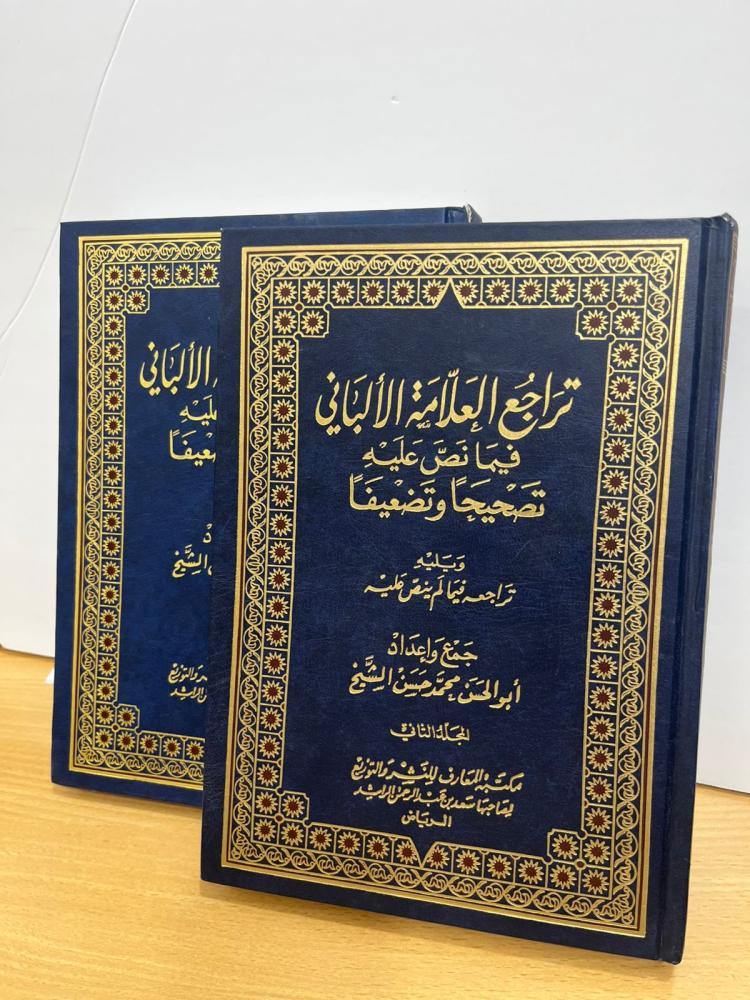 تراجع العلامة الألباني
فيما نص عليه
تصحيحا وتضعيفا
ويليه
تراجعه فيما لم ينص عليه
جمع وإعداد
أبو الحسن محمد حسن الشيخ
المجلد الثاني
مكتبة المعارف للنشر والتوزيع
لصاحبها سعد بن عبد الرحمن الراشد
الرياض
الألباني
عليه
الشيخ
والتوزيع
الراشد